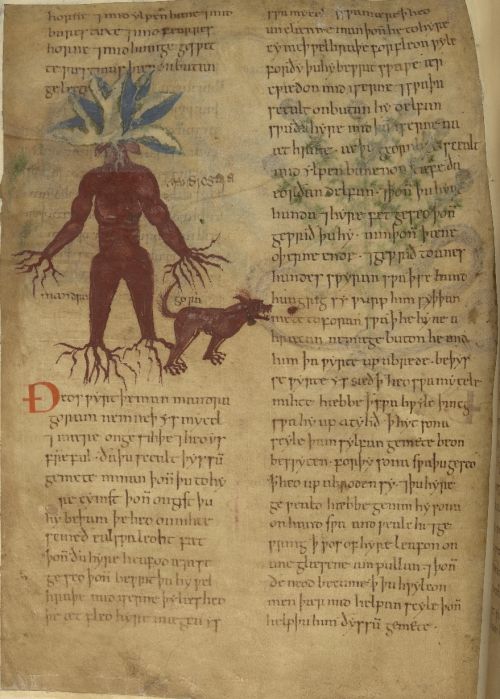 horne ⁊ mid ylpen bane ⁊ mid
⁊ mid fearres
horne ⁊ mid hunige
onbutan
mandragara
mandra gora
Ðeos ƿyrt þe man mandra
goram nemneþ ys mycel
⁊ mære on gesihþe ⁊ heo ys
fremful · ða þu scealt þyssū
gemete niman þoñ þu to hy
re cymst þoñ ongist þu
hy be þam þe heo on nihte
scineð eal sƿa leoht fæt
þoñ ðu hyre heafod ærest
geseo þoñ beƿrit þu hy ƿel
hraþe mid iserne þy læs heo
þe æt fleo hyre mægen ys
sƿa mycel ⁊ sƿa mære ꝥ heo
unclænne man þoñ he to hyre
cymeþ ƿel hraþe forfleon ƿyle
forðy þu hy beƿrit sƿa ƿe ær
cƿædon mid iserne ⁊ sƿa þu
scealt onbutan hy delfan
sƿa ðu hyre mid þam iserne na
æt hrine · ac þu geornlice scealt
mid ylpen banenon stæfe ða
eorðan delfan · ⁊ þoñ þu hyre
handa ⁊ hyre fet geseo þoñ
geƿrið þu hy · nim þoñ þæne
oþerne ende · ⁊ geƿrið to anes
hundes sƿyran sƿa þ se hund
hungrig sy ƿurp him syþþan
mete toforan sƿa ꝥ he hyne a
hræcan ne mæge buton he mid
him þa ƿyrte up abrede · be þys
se ƿyrte ys sæd ꝥ heo sƿa mycele
mihte hæbbe ꝥ sƿa hƿylc þincg
sƿa hy up atyhð ꝥ hyt sona
scyle þam sylfan gemete beon
besƿycen · forþy sona sƿa þu geseo
ꝥ heo up abroden sy · ⁊ þu hyre
geƿeald hæbbe genim hy sona
on hand sƿa ⁊ ƿealc hi ⁊ ge
ƿring ꝥ ƿos of hyre leafon on
ane glæsene ampullan ⁊ þoñ
ðe neod becume ꝥ þu hƿylcon
men þær mid helpan scyle þoñ
help þu him ðyssū gemete ·